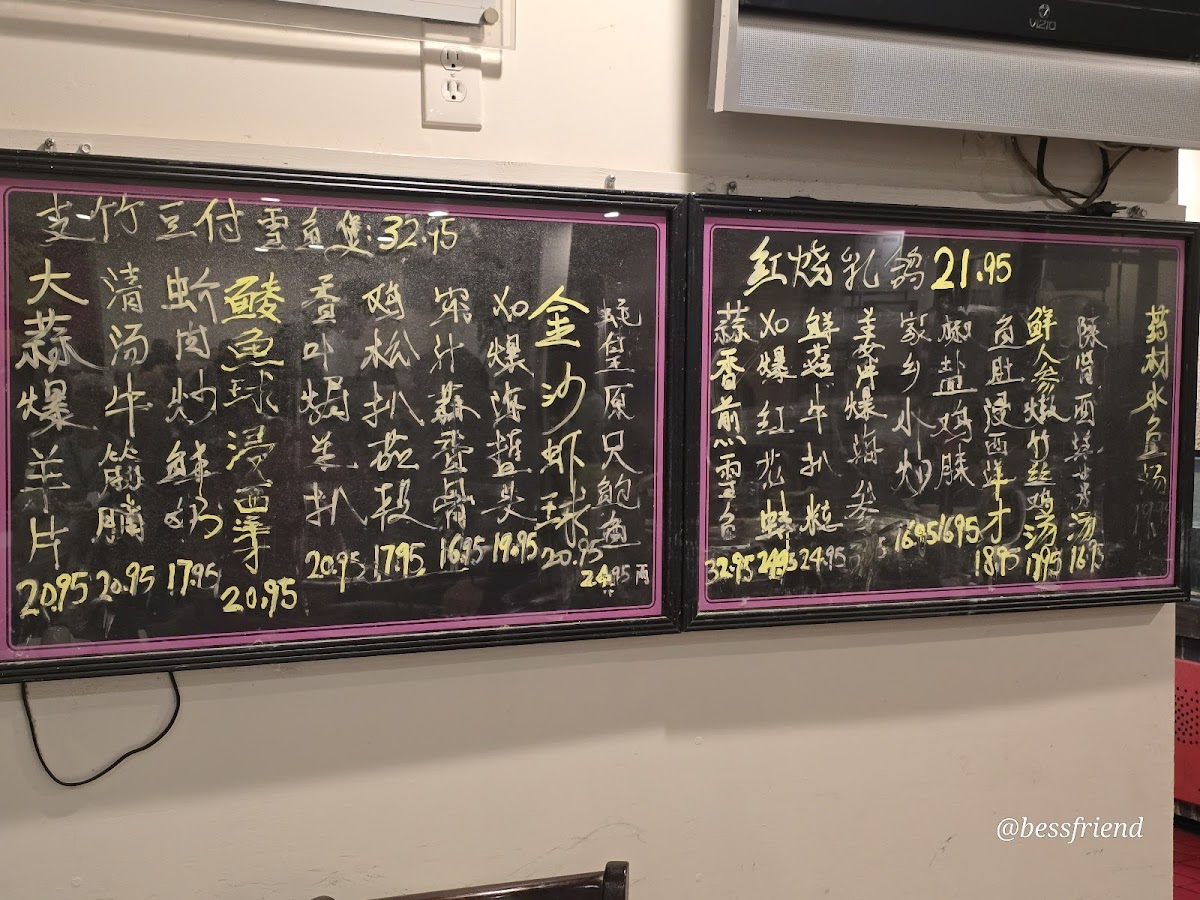 VIZIO
支竹豆付雪鱼煲:32.95
大蒜爆羊片 20.95
清汤牛筋腩 20.95
蚧肉炒鲜奶 17.95
鲮魚球浸西洋才 20.95
香叶焗羊扒 20.95
鸡松扒茄段 17.95
蜜汁蒜香骨 16.95
XO爆海蜇头 19.95
金沙虾球 20.95
蚝皇原只鲍鱼 24.95 两
红烧乳鸽 21.95
蒜香煎雪鱼 32.95
XO爆红花蚌
鲜菇牛扒粒 24.95
姜葱爆海参
家乡小炒 16.95
椒盐鸡膝 16.95
鱼肚浸西洋才 18.95
鲜人参炖竹丝鸡汤 17.95
陈肾西菜 汤 16.95
药材水鱼汤
@bessfriend